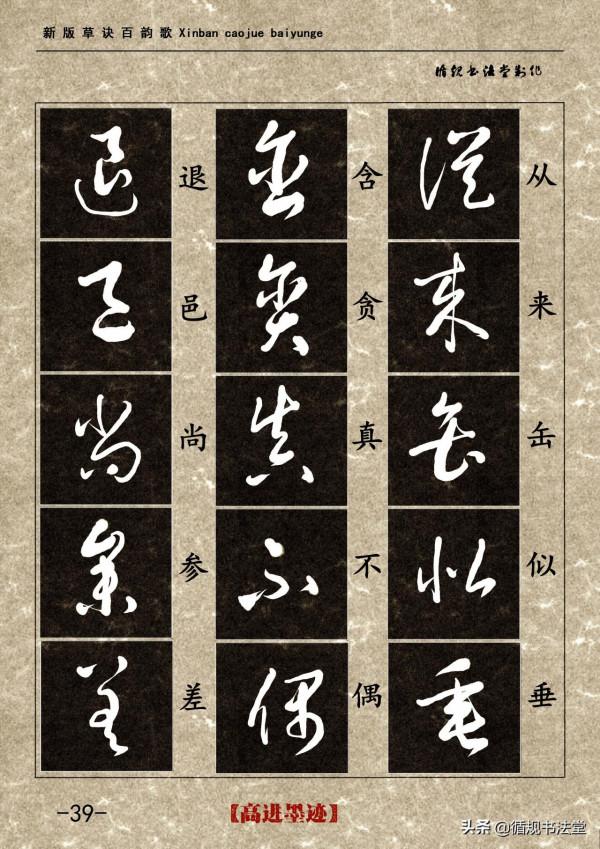 新版草诀百韵歌 Xinban caojue baiyunge
循规书法堂制作
从来缶似垂
含贪真不偶
退邑尚参差
-39-
【高进墨迹】
头条@循规书法堂